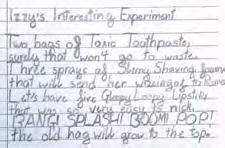 Izzy's Interesting Experiment
Two bags of Toxic Toothpaste,
surely that won't go to waste.
Three sprays of Shiny Shaving
that will send her
Let's have five Gloopy Loopy Lipsticks
that was very easy to nick.
BANG! SPLASH! BOOM! POP!
the old hag will grow to the top.